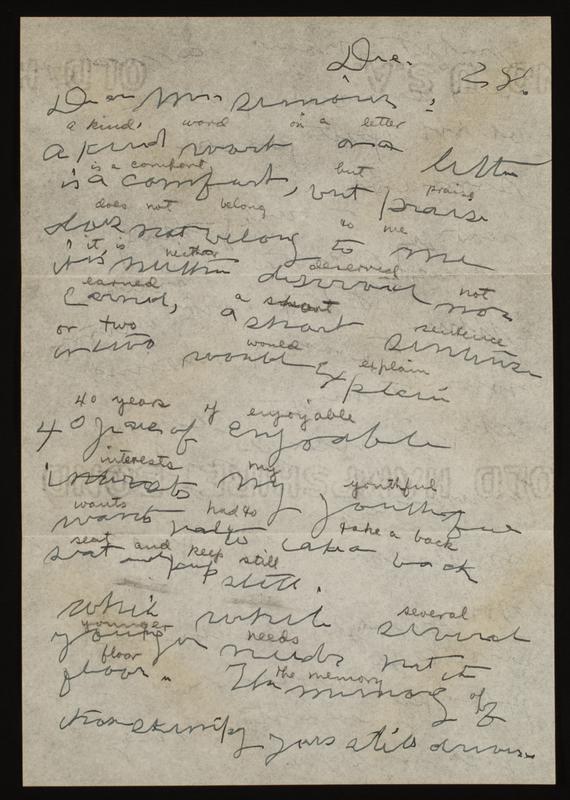 Dec. 28.
Dear Mrs
a kind word on a letter
a kind word on a letter
is a comfort but praise
is a comfort, but praise
does not belong to me
does not belong to me
it is neither deserved not
it is neither deserved nor
earned a short sentence
Earned, a short sentence
or two would explain
or two would Explain
40 years of enjoyable
40 years of Enjoyable
interests my youthful
interests my youthful
wants had to take a back
wants had to take a back
seat and keep still
seat and keep still.
while several
which while several
younger needs
younger needs met it
floor the memory of
floor. The memory of
those skimpy years still